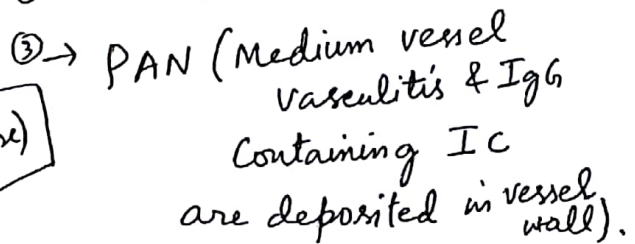 ③→ PAN (Medium vessel
vasculitis & IgG
se)
Containing IC
are deposited in vessel
wall).